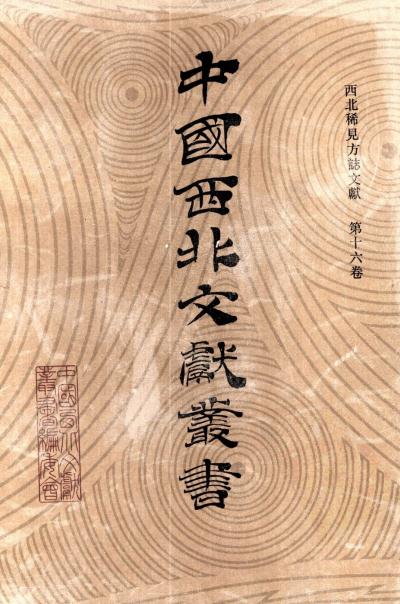 西北稀見方誌文獻 第十六卷
中國西北文獻叢書
中國西北文獻
叢書編委會